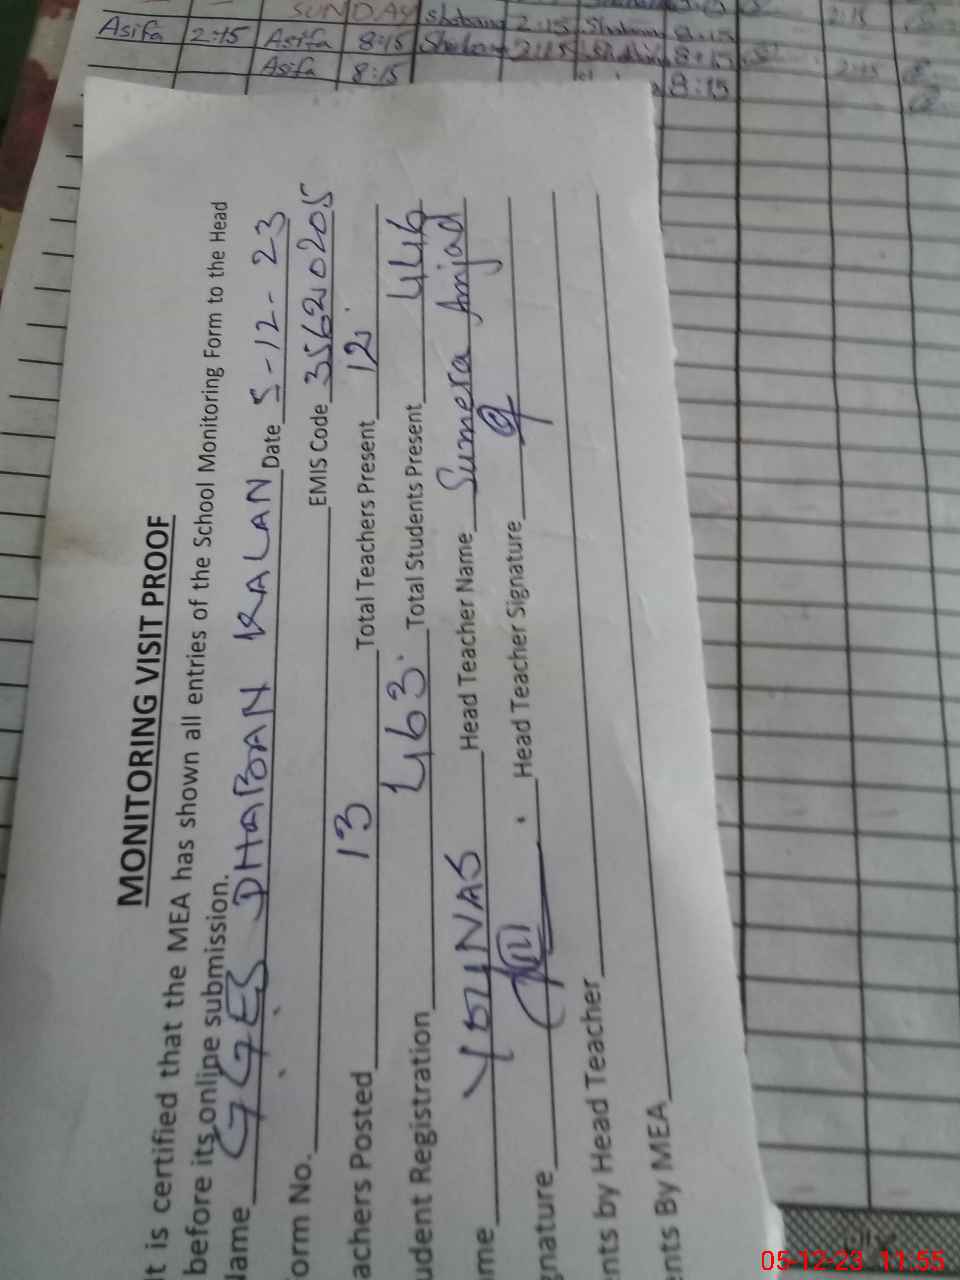 SUNDAY Shabana 2:15 Shabana 8:15 2:15
Asifa 2:15 Asifa 8:15 Shabana 2:15 8:15 2:15
Asifa 8:15
8:15
MONITORING VISIT PROOF
It is certified that the MEA has shown all entries of the School Monitoring Form to the Head
before its online submission.
Name GGES DHABAN KALAN Date 5-12-23
orm No. EMIS Code 35620205
achers Posted 13 Total Teachers Present 12
udent Registration 463 Total Students Present 446
me YOUNAS Head Teacher Name Sumera Amjad
gnature Head Teacher Signature
nts by Head Teacher
ents By MEA
05-12-23 11:55